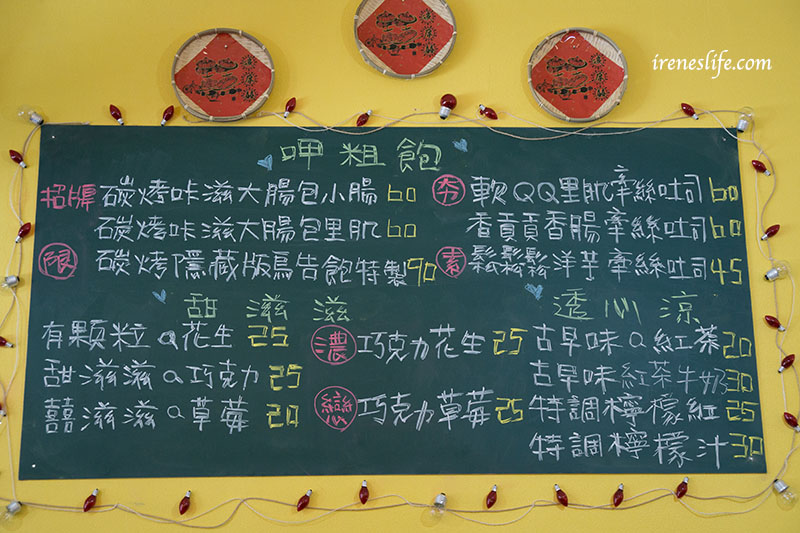 ireneslife.com
呷粗飽
招牌 碳烤咔滋大腸包小腸 60
碳烤咔滋大腸包里肌 60
限 碳烤隱藏版烏告飽特製 90
夯 軟QQ里肌牽絲吐司 60
香貢貢香腸牽絲吐司 60
素 鬆鬆鬆洋芋牽絲吐司 45
甜滋滋
有顆粒a花生 25
甜滋滋a巧克力 25
囍滋滋a草莓 20
濃 巧克力花生 25
戀 巧克力草莓 25
透心涼
古早味a紅茶 20
古早味紅茶牛奶 30
特調檸檬紅 25
特調檸檬汁 30